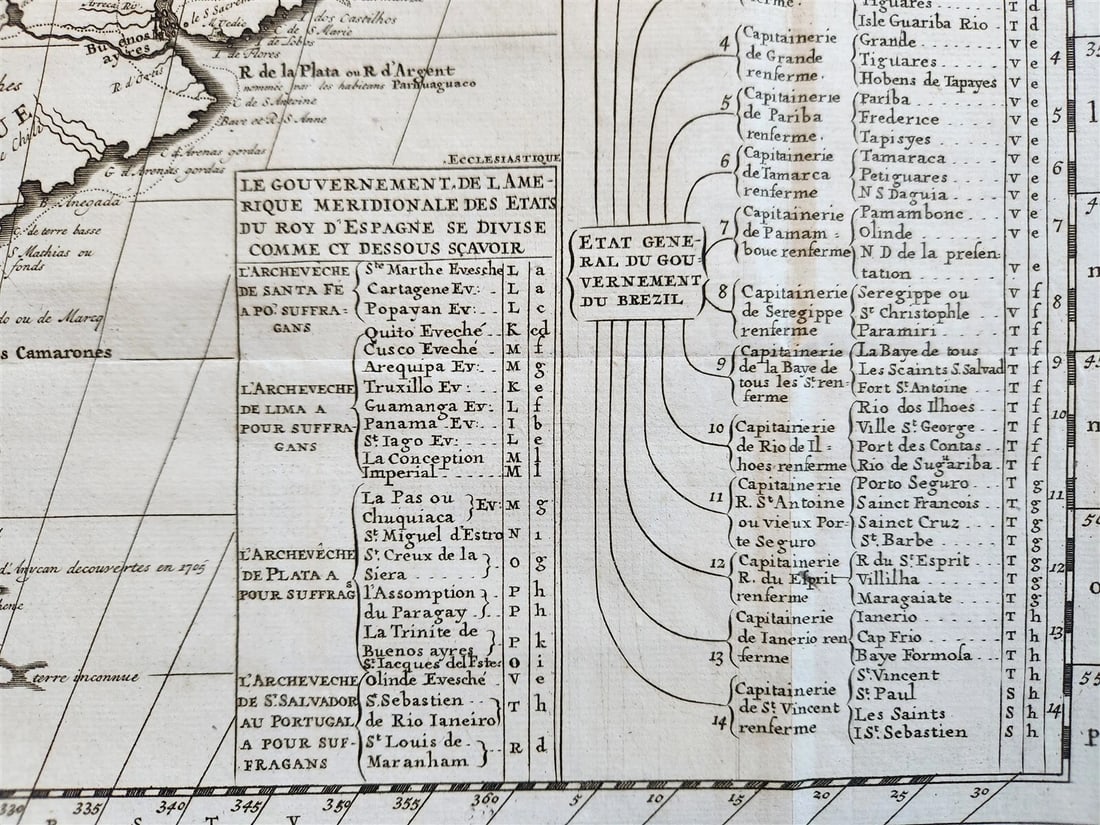 I dos Castilhos
C de S. Marie
I. de Lobos
I. de Flores
Buenos
ayres
R de la Plata ou R d'Argent
nommée par les habitans Parnhuaguaco
C de S. Antoine
Baye et R S Anne
C d'Arenas gordas
G d'Arenas gordas
B. Anegada
C. de terre basse
S. Mathias ou
fonds
do ou de Marcq
s Camarones
d'Anycan decouvertes en 1705
terre inconnue
.ECCLESIASTIQUE
LE GOUVERNEMENT.DE L AME-
RIQUE MERIDIONALE DES ETATS
DU ROY D'ESPAGNE SE DIVISE
COMME CY DESSOUS SÇAVOIR
L'ARCHEVECHE
DE SANTA FE
A PO.r SUFFRA-
GANS
Ste Marthe Evesche L a
Cartagene Ev: L a
Popayan Ev: L c
L'ARCHEVECHE
DE LIMA A
POUR SUFFRA-
GANS
Quito Eveché K cd
Cusco Eveché M f
Arequipa Ev: M g
Truxillo Ev: K e
Guamanga Ev: L f
Panama Ev: I b
St. Iago Ev: L e
La Conception M l
Imperial M l
L'ARCHEVÊCHE
DE PLATA A
POUR SUFFRAGs
La Pas ou
Chuquiaca Ev: M g
St. Miguel d'Estro N i
St. Creux de la
Siera O g
l'Assomption P h
du Paragay P h
La Trinite de
Buenos ayres P k
St. Iacques del Estes O i
L'ARCHEVECHE
DE St. SALVADOR
AU PORTUGAL
A POUR SUF-
FRAGANS
Olinde Evesché V e
St. Sebastien
de Rio Ianeiro T h
St Louis de
Maranham R d
ETAT GENE-
RAL DU GOU-
VERNEMENT
DU BREZIL
Tiguares T d
Isle Guariba Rio T d
4 Capitainerie
de Grande
renferme.
Grande V e
Tiguares V e
Hobens de Tapayes V e
5 Capitainerie
de Pariba
renferme.
Pariba V e
Frederice V e
Tapisyes V e
6 Capitainerie
de Tamarca
renferme
Tamaraca V e
Petiguares V e
N S Daguia V e
7 Capitainerie
de Pamam-
bouc renferme
Pamambonc V e
Olinde V e
N D de la presen:
tation V e
8 Capitainerie
de Seregippe
renferme
Seregippe ou V f
St Christophle V f
Paramiri T f
9 Capitainerie
de la Baye de
tous les Sts ren-
ferme
La Baye de tous T f
Les Scaints S. Salvad T f
Fort St. Antoine T f
10 Capitainerie
de Rio de Il-
hoes renferme
Rio dos Ilhoes T f
Ville St George T f
Port des Contas T f
Rio de Sugariba T f
11 Capitainerie
R. St Antoine
ou vieux Por-
te Seguro
Porto Seguro T g
Sainct Francois T g
Sainct Cruz T g
St. Barbe T g
12 Capitainerie
R. du Esprit
renferme
R du St. Esprit T g
Villilha T g
Maragaiate T g
13 Capitainerie
de Ianerio ren
ferme
Ianerio T h
Cap Frio T h
Baye Formosa T h
14 Capitainerie
de St. Vincent
renferme
St. Vincent T h
St. Paul S h
Les Saints S h
I St. Sebastien S h
4
5
6
7
8
9
10
11
12
13
14
330 335 340 345 350 355 360 5 10 15 20 25 30